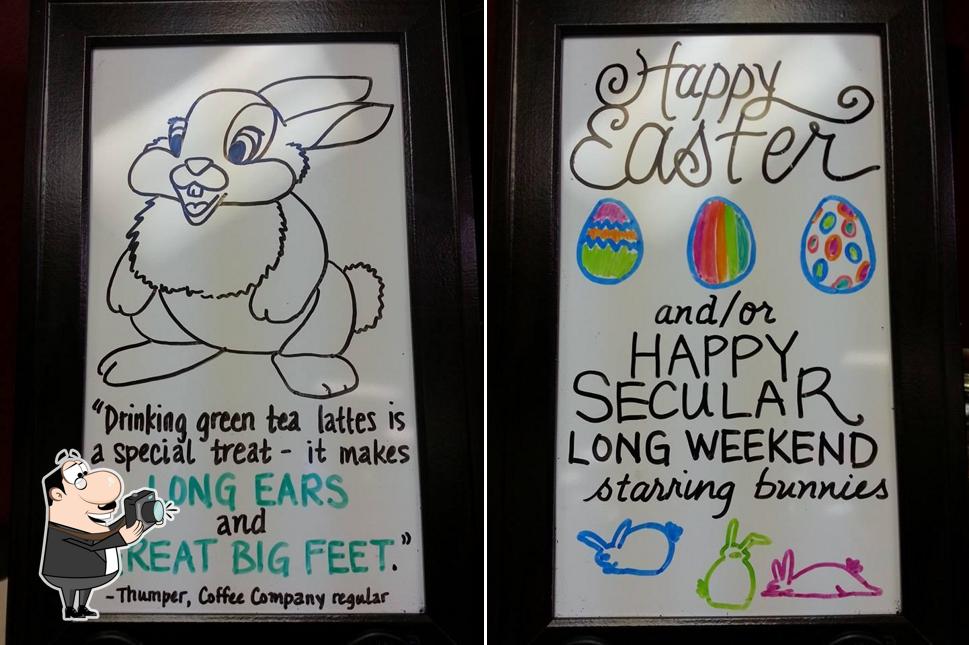 "Drinking green tea lattes is
a special treat - it makes
LONG EARS
and
REAT BIG FEET."
- Thumper, Coffee Company regular
Happy
Easter
and/or
HAPPY
SECULAR
LONG WEEKEND
starring bunnies